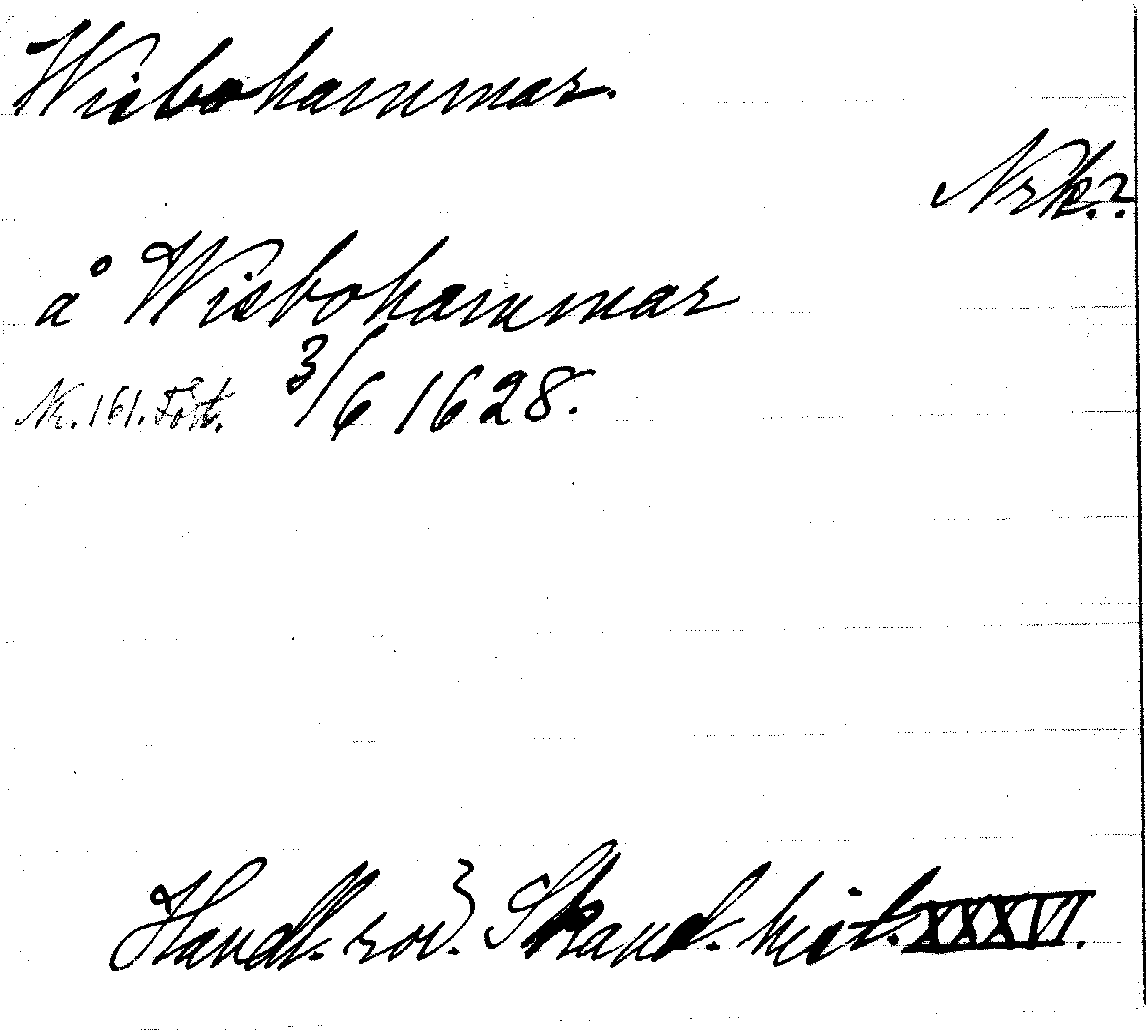 Wisbohammar.
Nrk.?
å Wisbohammar
Nr. 161. Fört. 3/6 1628.
Handl. rör. Skand. hist. XXXVI.